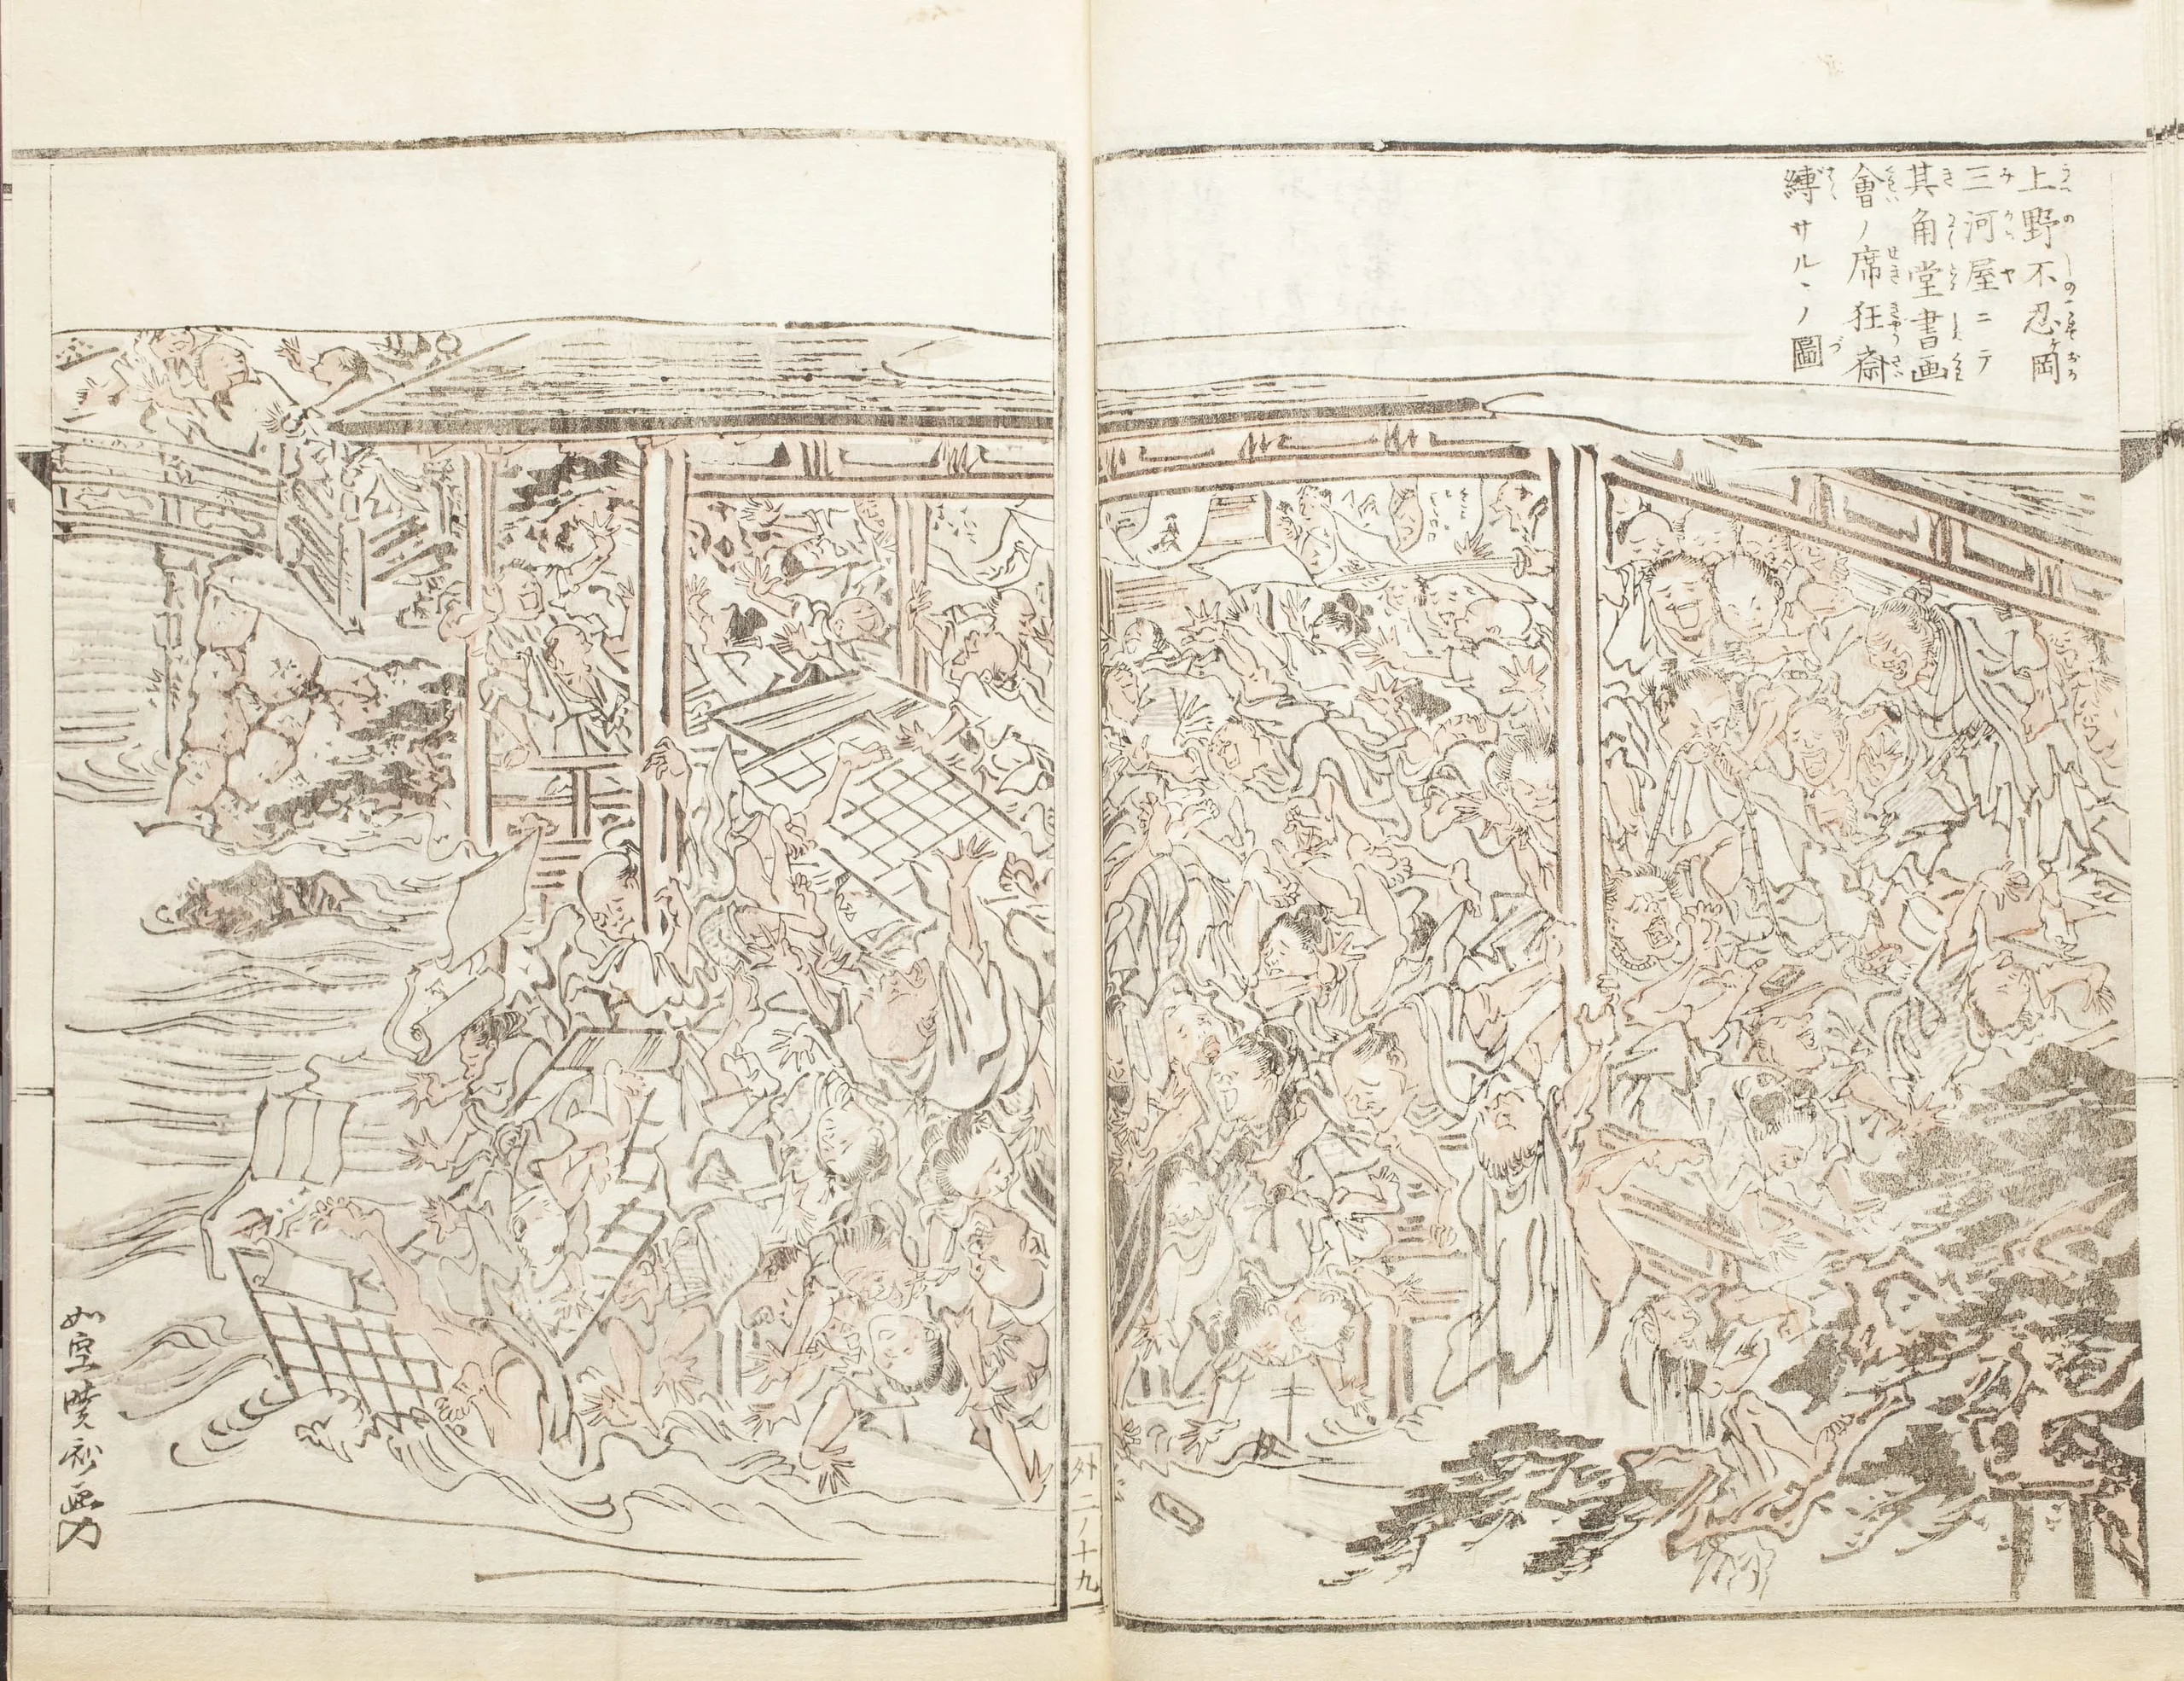 上野不忍ヶ岡
三河屋ニテ
其角堂書画
會ノ席狂斎
縛サルヽノ圖
外二ノ十九
如空暁斎画